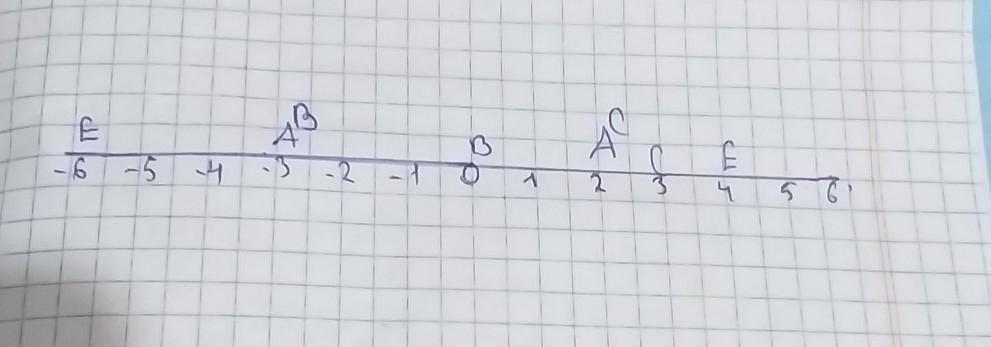 E A B B A C C E
-6 -5 -4 -3 -2 -1 0 1 2 3 4 5 6